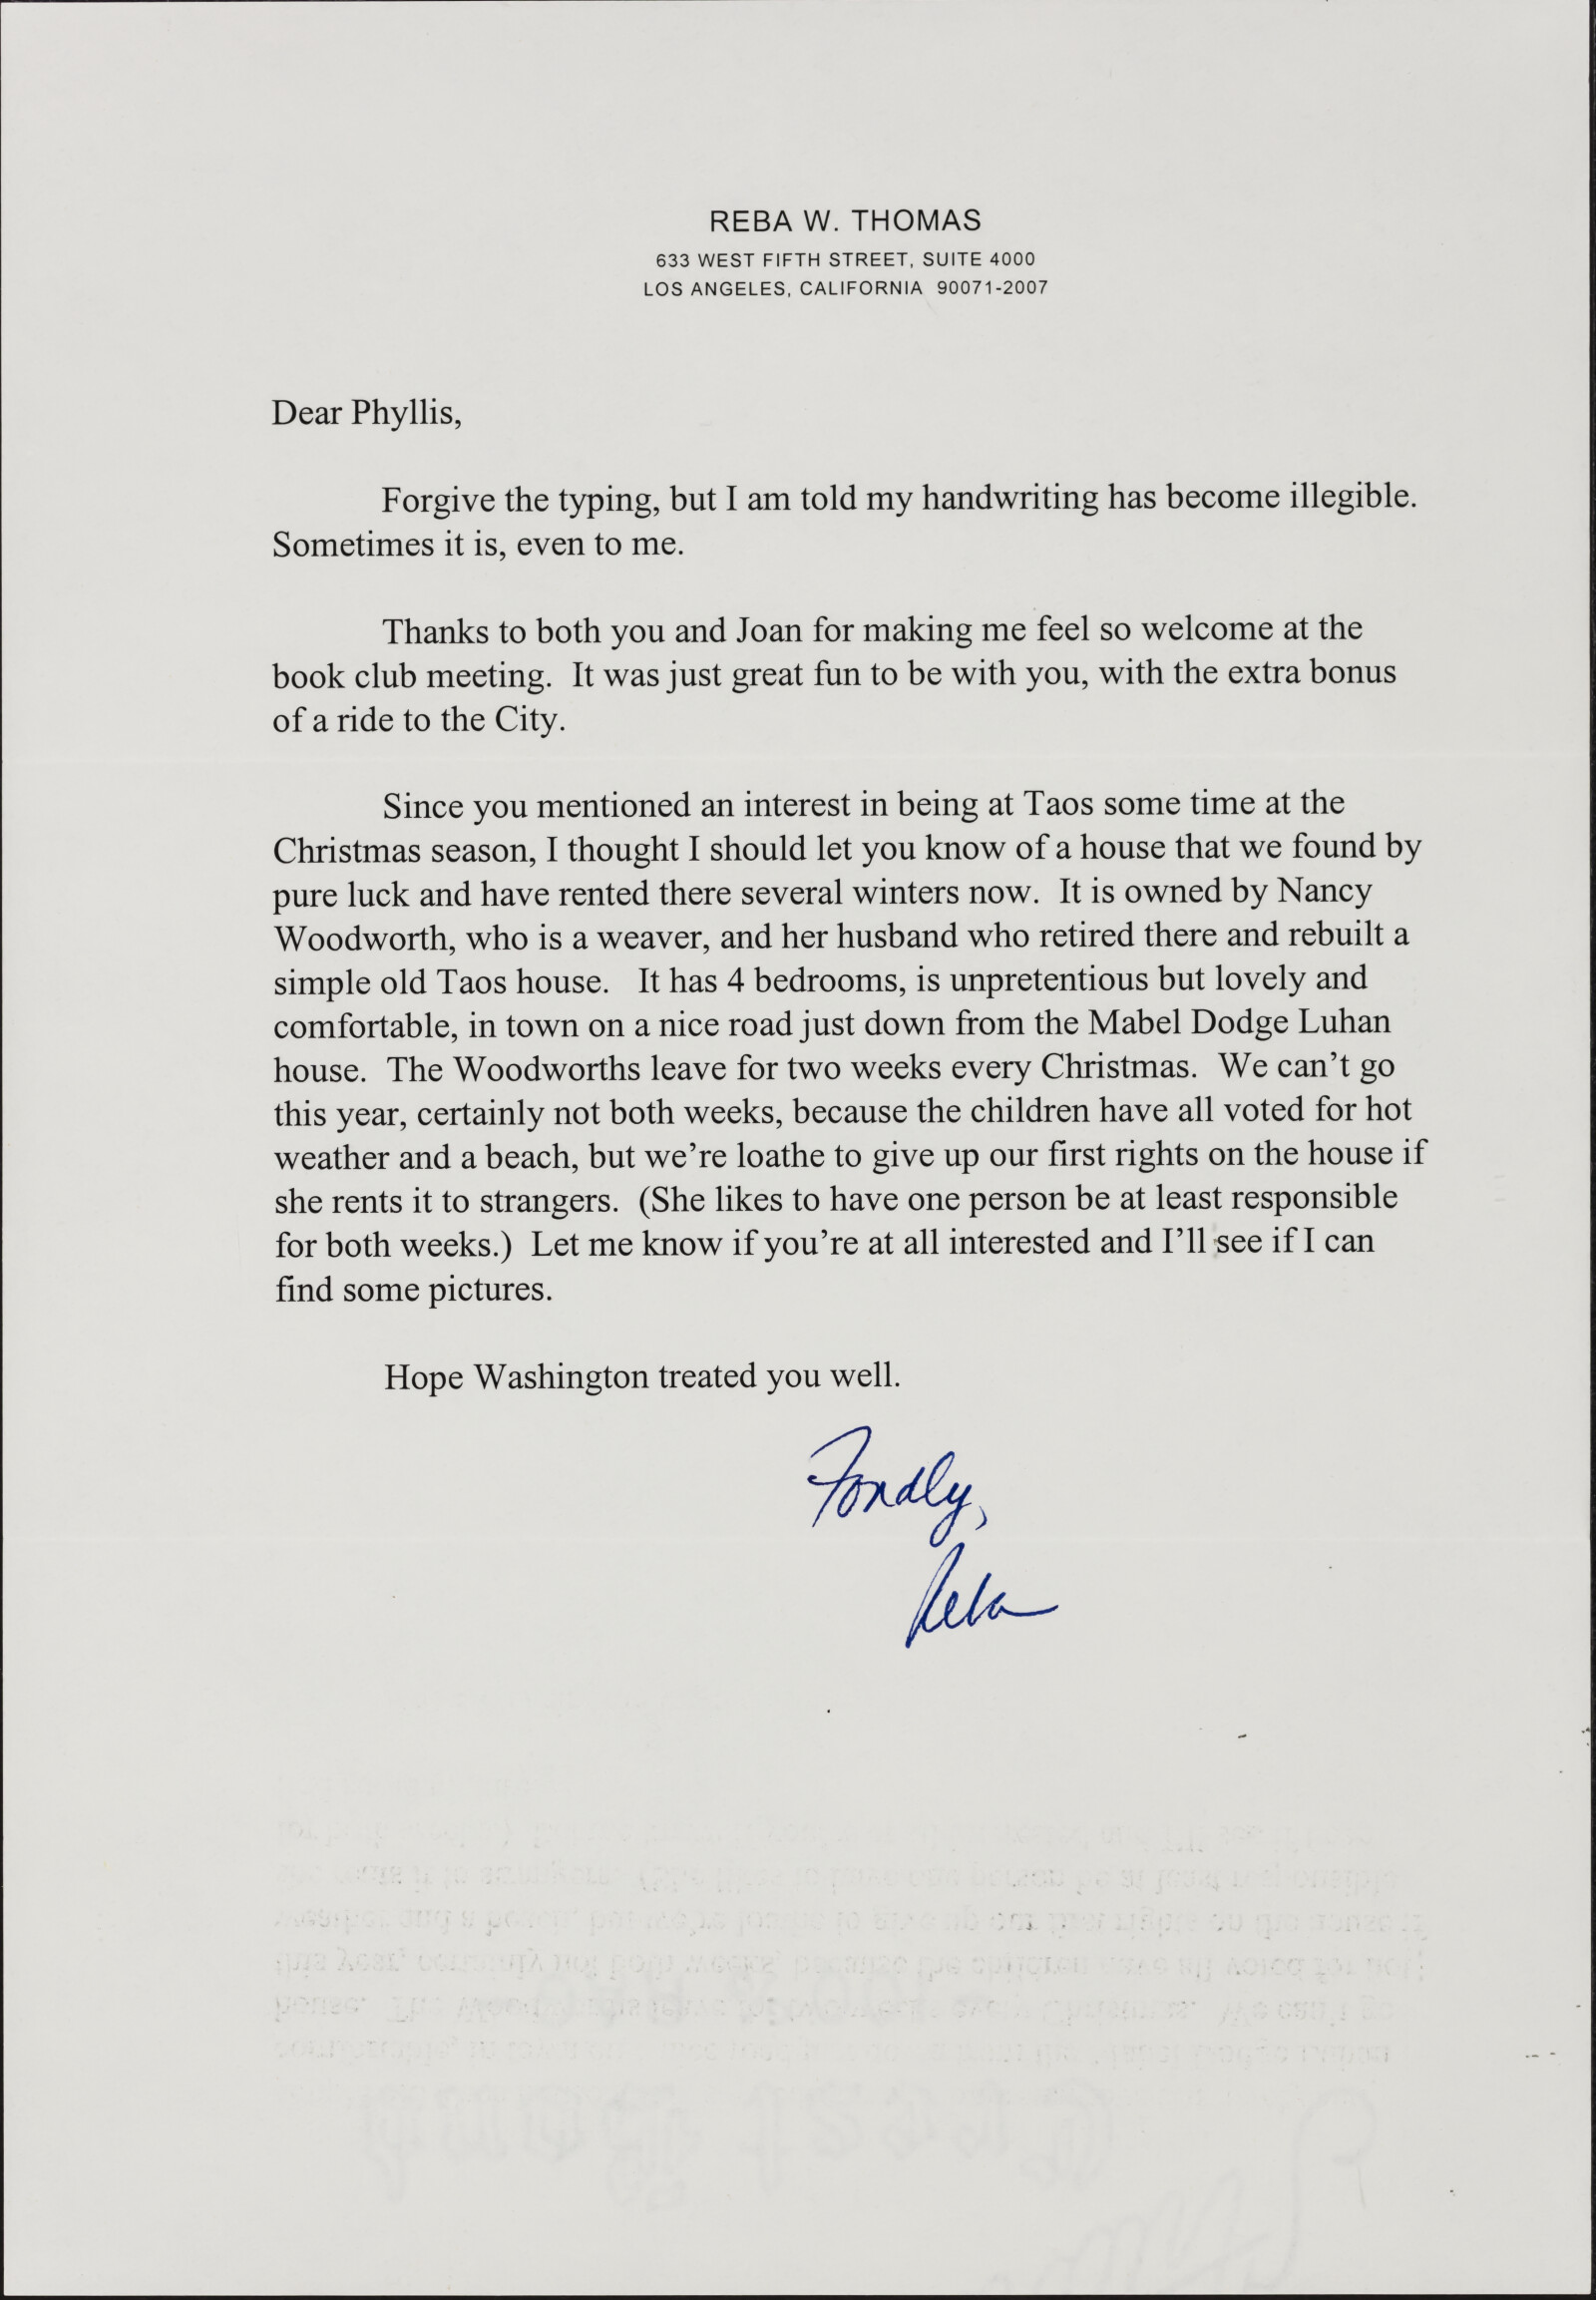 REBA W. THOMAS
633 WEST FIFTH STREET, SUITE 4000
LOS ANGELES, CALIFORNIA 90071-2007
Dear Phyllis,
Forgive the typing, but I am told my handwriting has become illegible.
Sometimes it is, even to me.
Thanks to both you and Joan for making me feel so welcome at the
book club meeting. It was just great fun to be with you, with the extra bonus
of a ride to the City.
Since you mentioned an interest in being at Taos some time at the
Christmas season, I thought I should let you know of a house that we found by
pure luck and have rented there several winters now. It is owned by Nancy
Woodworth, who is a weaver, and her husband who retired there and rebuilt a
simple old Taos house. It has 4 bedrooms, is unpretentious but lovely and
comfortable, in town on a nice road just down from the Mabel Dodge Luhan
house. The Woodworths leave for two weeks every Christmas. We can’t go
this year, certainly not both weeks, because the children have all voted for hot
weather and a beach, but we’re loathe to give up our first rights on the house if
she rents it to strangers. (She likes to have one person be at least responsible
for both weeks.) Let me know if you’re at all interested and I’ll see if I can
find some pictures.
Hope Washington treated you well.
Fondly,
Reba